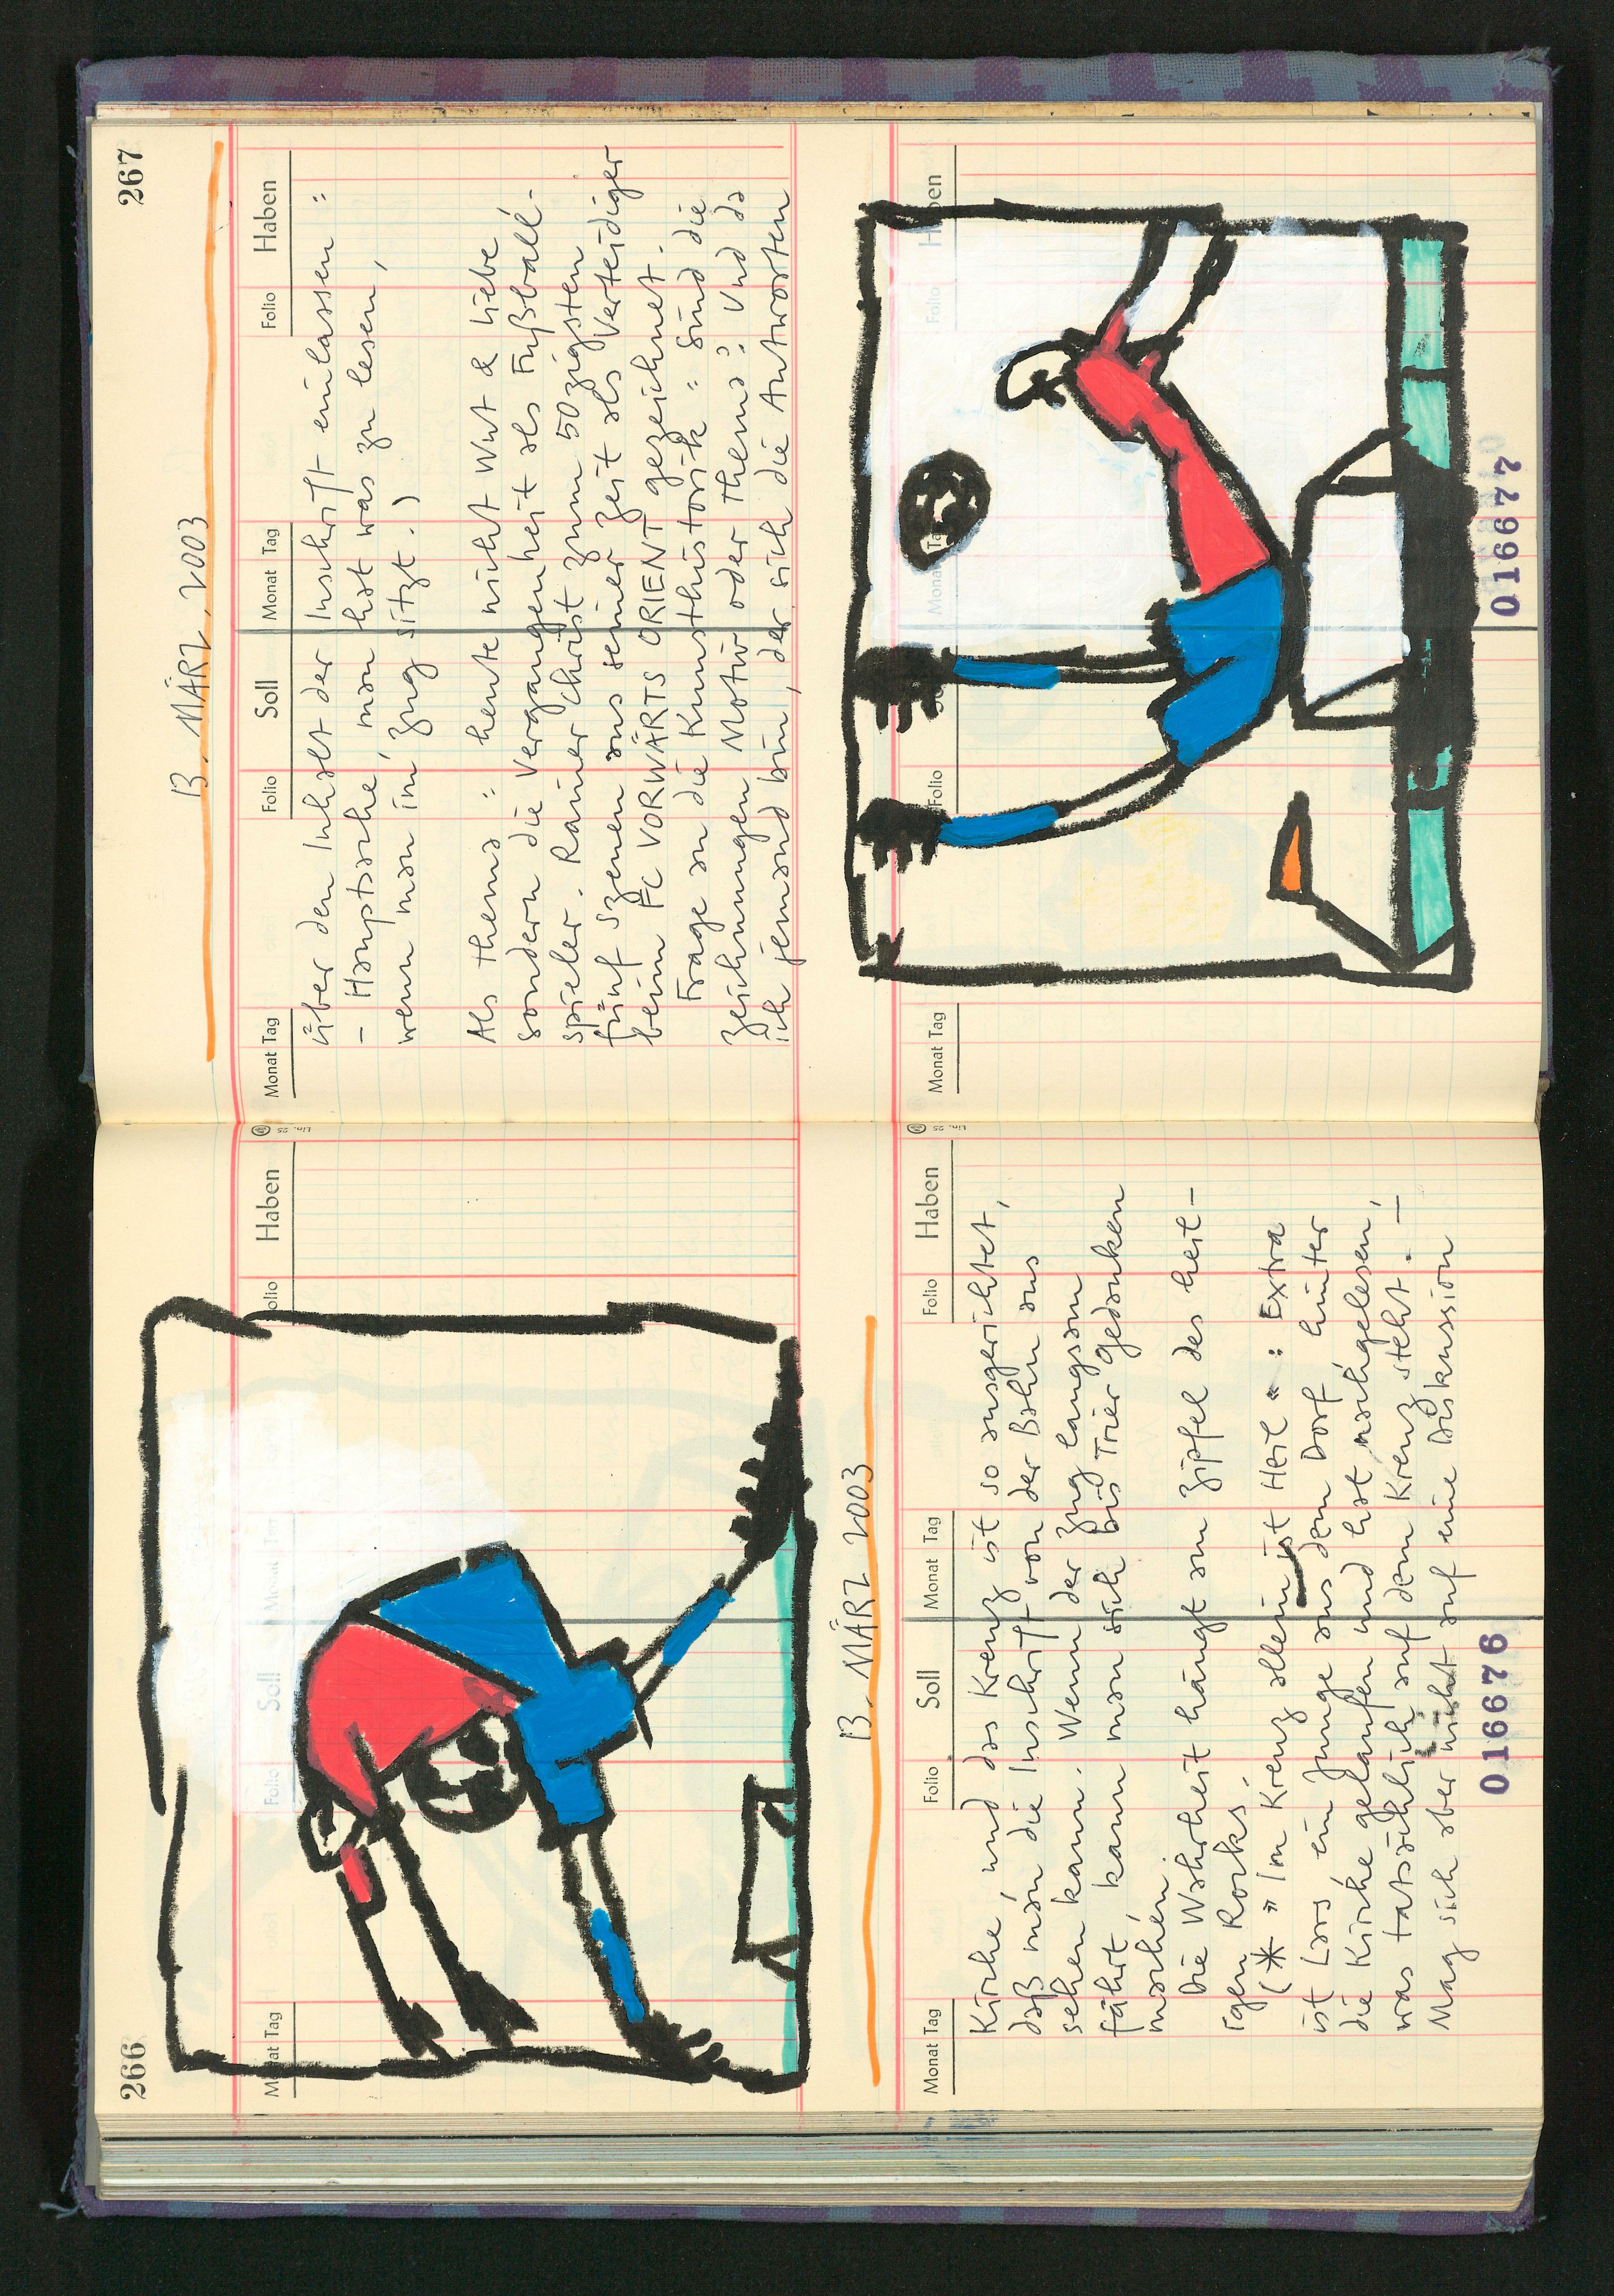 266
Monat Tag
Folio
Soll
Monat Tag
Folio
Haben
13. MÄRZ 2003
Monat Tag
Folio
Soll
Monat Tag
Folio
Haben
Kirche, und das Kreuz ist so ausgerichtet,
daß man die Inschrift von der Bahn aus
sehen kann. Wenn der Zug langsam
fährt, kann man sich bis Trier Gedanken
machen.
Die Wahrheit hängt am Zipfel des heil-
igen Rocks.
(* » Im Kreuz allein ist Heil « : Extra
ist Lars, ein Junge aus dem Dorf hinter
die Kirche gelaufen und hat nachgelesen,
was tatsächlich auf dem Kreuz steht. –
Mag sich aber nicht auf eine Diskussion
016676
267
13. MÄRZ. 2003
Monat Tag
Folio
Soll
Monat Tag
Folio
Haben
über den Inhalt der Inschrift einlassen :
– Hauptsache, man hat was zu lesen,
wenn man im Zug sitzt.)
Als Thema : heute nicht Wut & Liebe
sondern die Vergangenheit als Fußball-
spieler. Rainer Christ zum 50zigsten
fünf Szenen aus seiner Zeit als Verteidiger
beim FC VORWÄRTS ORIENT gezeichnet.
Frage an die Kunsthistorik : Sind die
Zeichnungen Motiv oder Thema? Und da
ich jemand bin, der sich die Antworten
Monat Tag
Folio
Monat Tag
Folio
Haben
016677